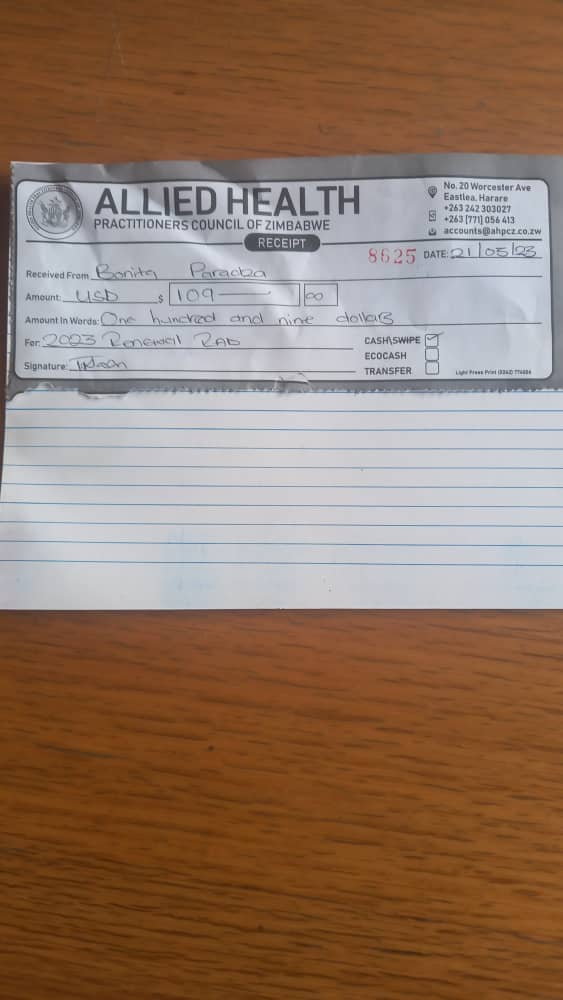 ALLIED HEALTH
PRACTITIONERS COUNCIL OF ZIMBABWE
RECEIPT
No. 20 Worcester Ave
Eastlea, Harare
+263 242 303027
+263 [771] 056 413
accounts@ahpcz.co.zw
8625 DATE: 21/05/23
Received From Bonita
Amount: USD $ 109 — 00
Amount In Words: One hundred and nine dollars
For: 2023 Renewal RAD
Signature:
CASH\SWIPE
ECOCASH
TRANSFER
Light Press Print (0242) 774606